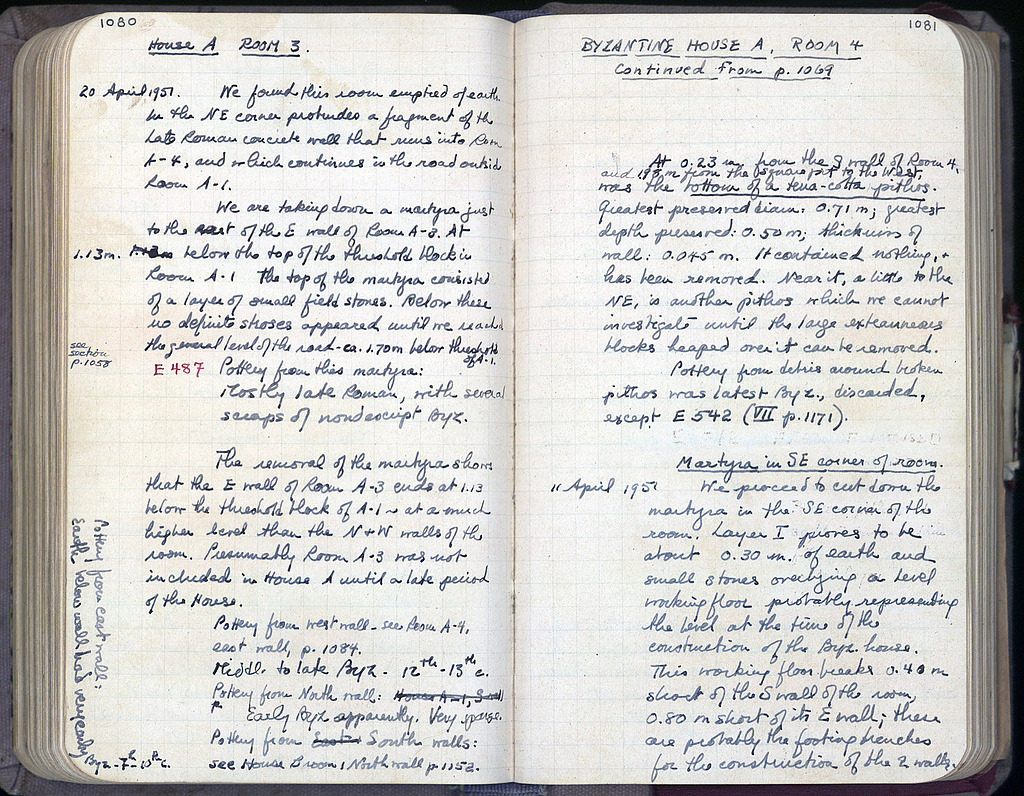 1080
House A ROOM 3.
20 April 1951. We found this room emptied of earth
In the NE corner protrudes a fragment of the
Late Roman concrete wall that runs into Room
A-4, and which continues in the road outside
Room A-1.
We are taking down a martyra just
to the east of the E wall of Room A-3. At
1.13m. below the top of the threshold block in
Room A-1 the top of the martyra consisted
of a layer of small field stones. Below these
no definite stroses appeared until we reached
the general level of the road - ca. 1.70m below threshold
of A-1.
see
section
p. 1058
E 487 Pottery from this martyra:
Mostly late Roman, with several
scraps of nondescript Byz.
The removal of the martyra shows
that the E wall of Room A-3 ends at 1.13
below the threshold block of A-1 - at a much
higher level than the N + W walls of the
room. Presumably Room A-3 was not
included in House A until a late period
of the House.
Pottery from west wall - see Room A-4,
east wall, p. 1084.
Middle to late Byz - 12th - 13th c.
Pottery from North wall: House A-1,
Early Byz apparently. Very sparse.
Pottery from East South walls:
see House B room 1 North wall p. 1152.
Pottery from east wall:
Earth below wall had very early
Byz - 7th - 10th c.
1081
BYZANTINE HOUSE A, ROOM 4
Continued from p. 1069
At 0.23 m. from the S wall of Room 4,
and m from the square pit to the West,
was the bottom of a terra-cotta pithos.
Greatest preserved diam: 0.71 m; greatest
depth preserved: 0.50 m; thickness of
wall: 0.045 m. It contained nothing, +
has been removed. Near it, a little to the
NE, is another pithos which we cannot
investigate until the large extraneous
blocks heaped over it can be removed.
Pottery from debris around broken
pithos was latest Byz., discarded,
except E 542 (VII p. 1171).
Martyra in SE corner of room.
11 April 1951 We proceed to cut down the
martyra in the SE corner of the
room. Layer I proves to be
about 0.30 m. of earth and
small stones overlying a level
working floor probably representing
the level at the time of the
construction of the Byz. house.
This working floor breaks 0.40 m
short of the S wall of the room,
0.80 m short of its E wall; these
are probably the footing trenches
for the construction of the 2 walls.